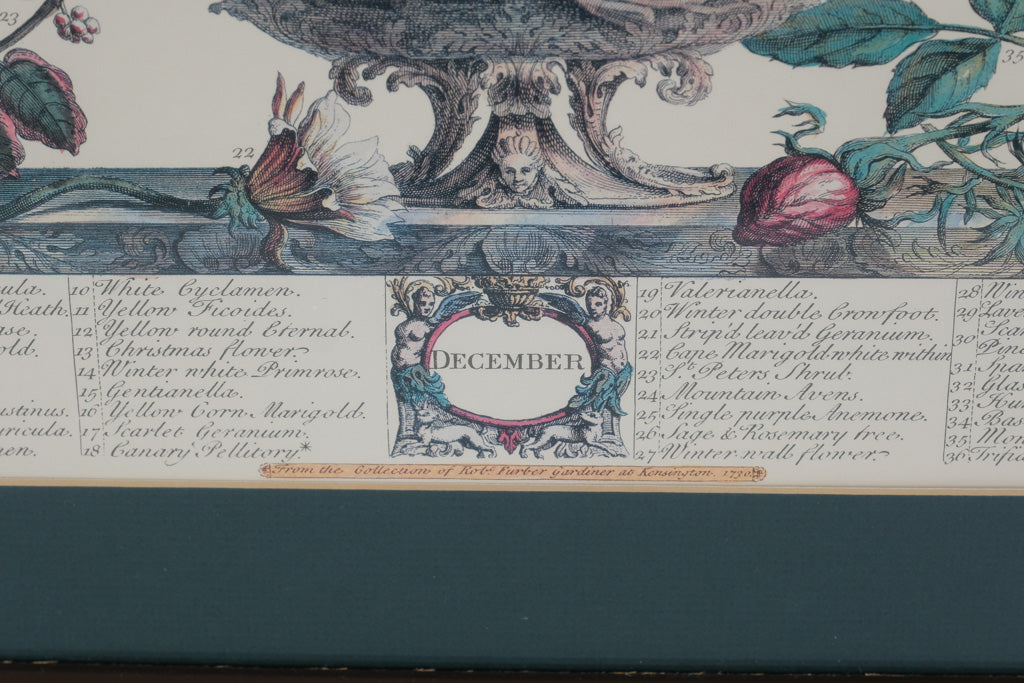 23
35
22
10 White Cyclamen.
11 Yellow Ficoides.
12 Yellow round Eternal.
13 Christmas flower.
14 Winter white Primrose.
15 Gentianella.
16 Yellow Corn Marigold.
17 Scarlet Geranium.
18 Canary Pellitory*
Heath.
old.
DECEMBER
19 Valerianella.
20 Winter double Crowfoot.
21 Strip'd leav'd Geranium.
22 Cape Marigold white within
23 St. Peters Shrub.
24 Mountain Avens.
25 Single purple Anemone.
26 Sage & Rosemary tree.
27 Winter wall flower.
28 Win
29 Lave
30
31
32 Glas
33
34 Bas
35
36
From the Collection of Robt. Furber Gardiner at Kensington. 1730.